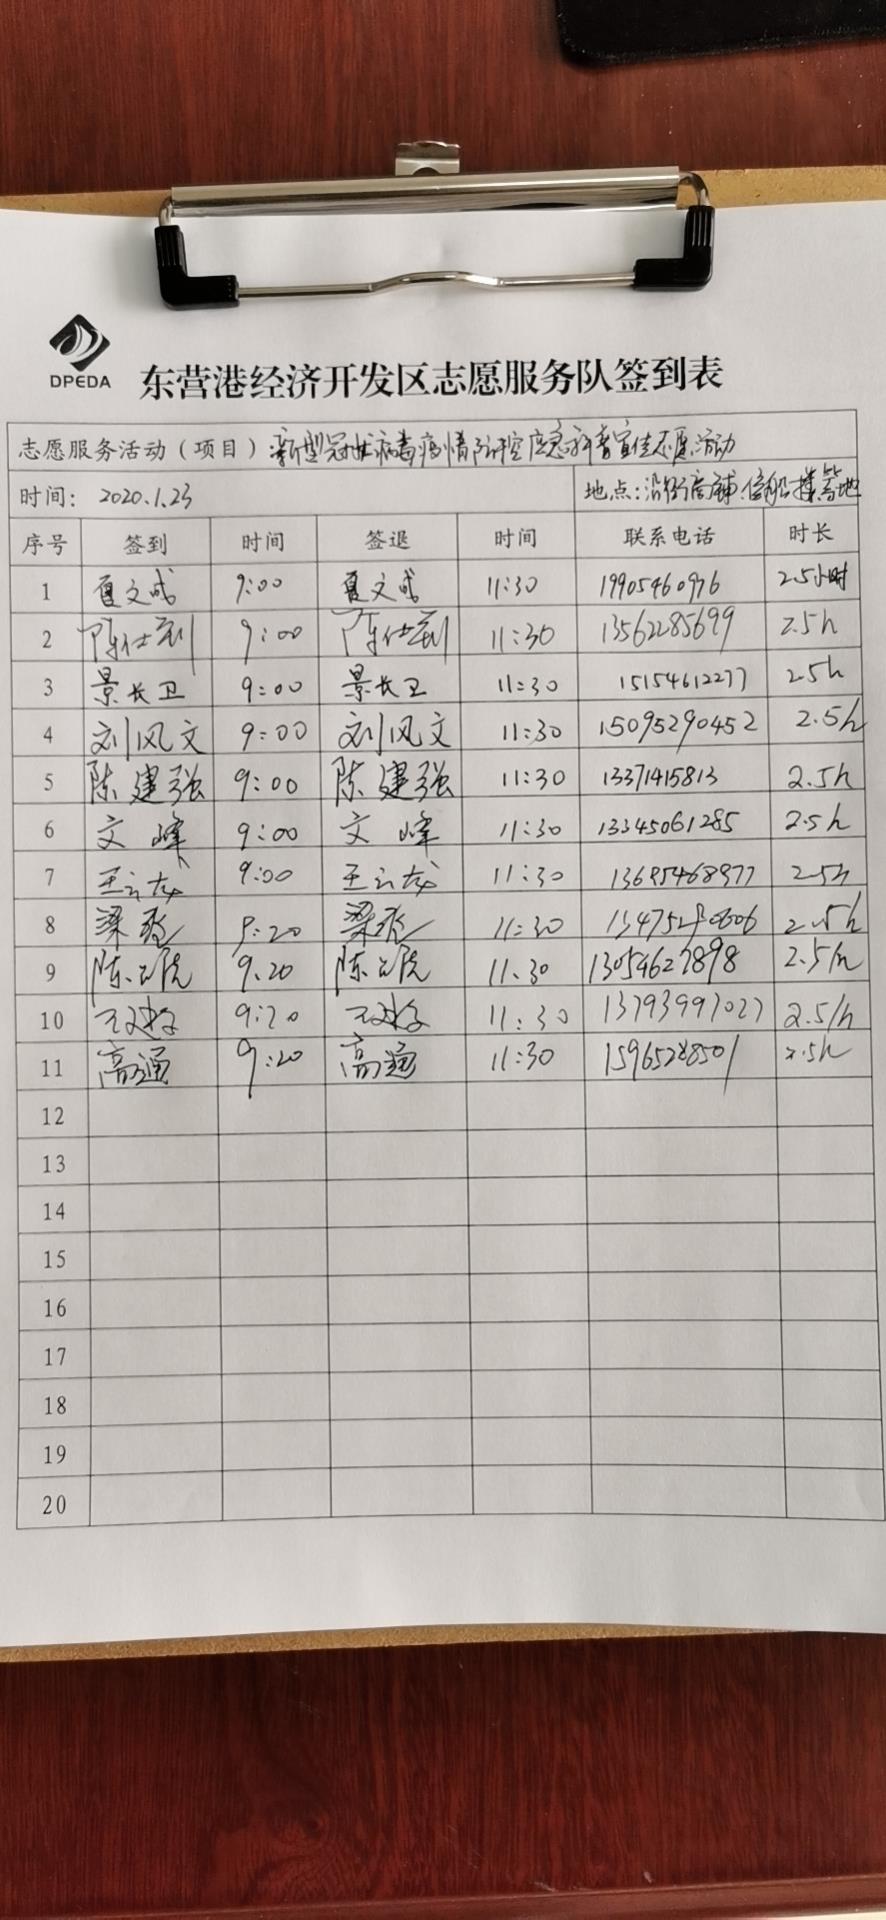 DPEDA
东营港经济开发区志愿服务队签到表
志愿服务活动（项目）：新型冠状病毒疫情防控应急科普宣传志愿活动
时间： 2020.1.23 地点：沿街商铺、停船
序号 签到 时间 签退 时间 联系电话 时长
1 夏文成 9:00 夏文成 11:30 19905460976 2.5小时
2 陈仕 9:00 陈仕 11:30 13562285699 2.5h
3 景长卫 9:00 景长卫 11:30 15154612277 2.5h
4 刘风文 9:00 刘风文 11:30 15095290452 2.5h
5 陈建强 9:00 陈建强 11:30 13371415813 2.5h
6 文峰 9:00 文峰 11:30 13345061285 2.5h
7 王云龙 9:00 王云龙 11:30 13695468977 2.5h
8 梁 9:20 梁 11:30 2.5h
9 陈 9.20 陈 11.30 13054627898 2.5/h
10 9:20 11:30 13793997027 2.5/h
11 高通 9:20 高通 11:30 15965288501 2.5h
12
13
14
15
16
17
18
19
20